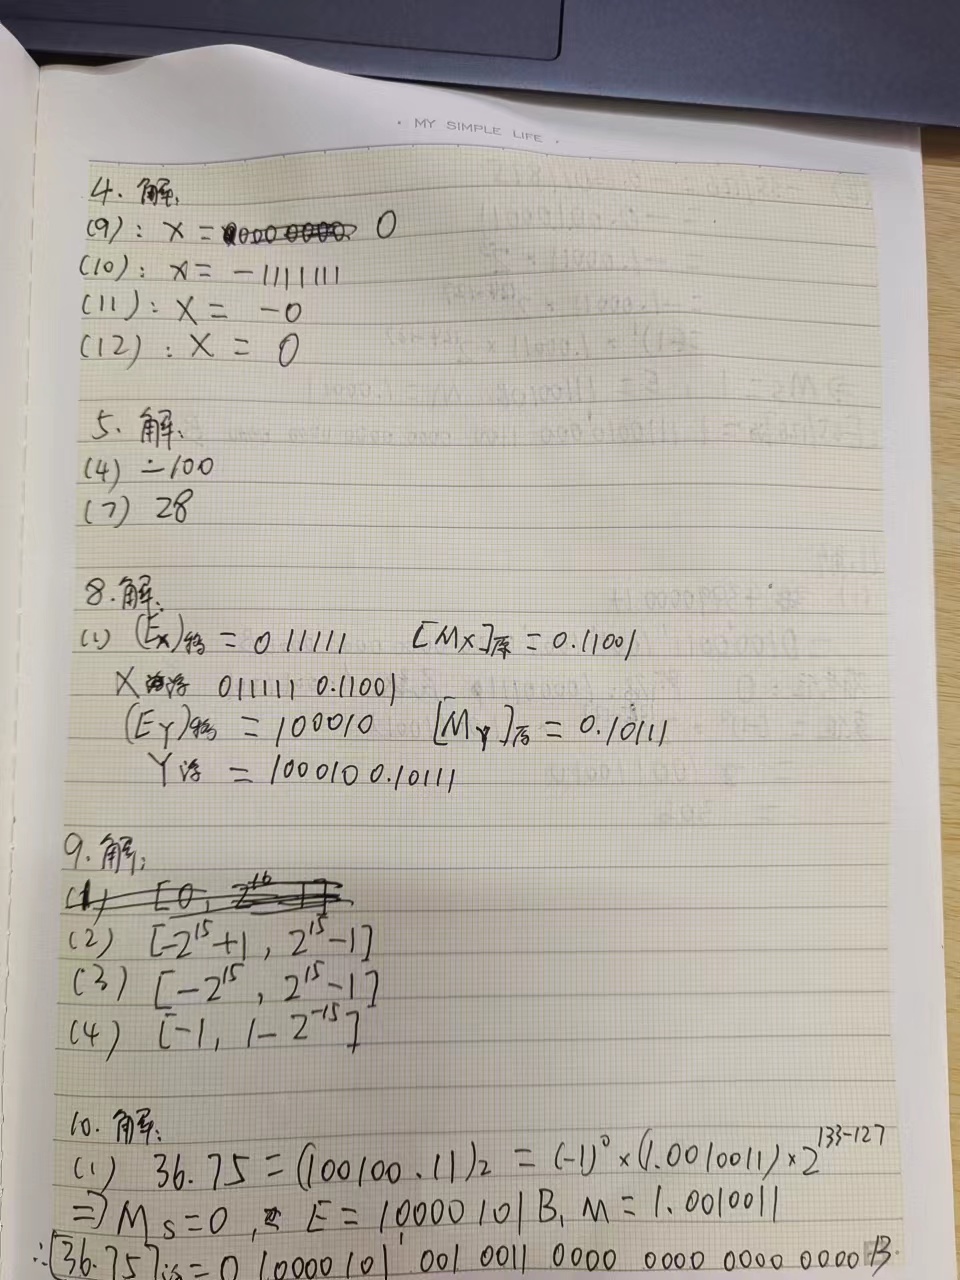 · MY SIMPLE LIFE ·
4. 解:
(9): X = 0
(10): X = -1111111
(11): X = -0
(12): X = 0
5. 解:
(4) -100
(7) 28
8. 解:
(1) (Ex)移 = 0 11111 [Mx]原 = 0.11001
X浮 011111 0.11001
(EY)移 = 100010 [MY]原 = 0.10111
Y浮 = 100010 0.10111
9. 解:
(2) [-2^15+1, 2^15-1]
(3) [-2^15, 2^15-1]
(4) [-1, 1-2^-15]
10. 解:
(1) 36.75 = (100100.11)2 = (-1)^0 × (1.0010011) × 2^133-127
⇒ Ms=0, E = 10000101B, M = 1.0010011
∴[36.75]浮 = 0 10000101 001 0011 0000 0000 0000 0000 B.